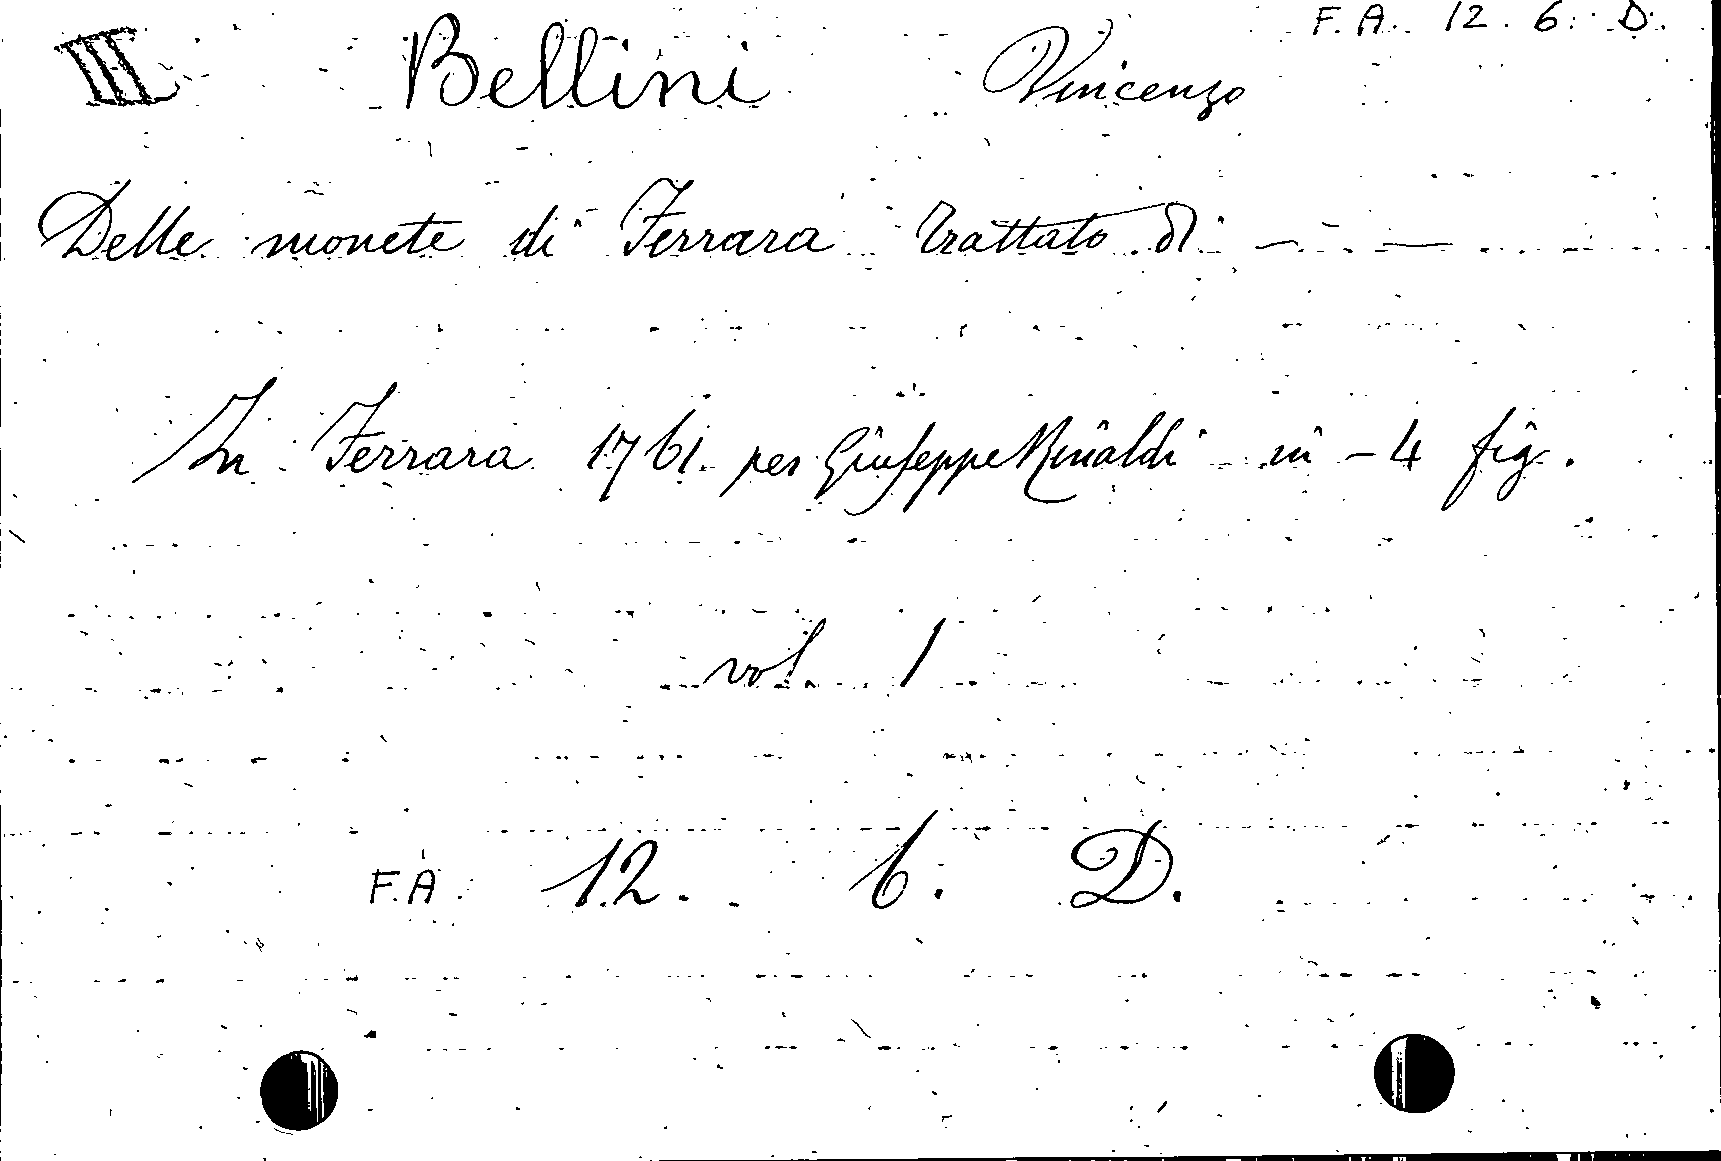 F. A. 12. 6. D.
III Bellini Vincenzo
Delle monete di Ferrara trattato di — —
In Ferrara 1761. per Giuseppe Rinaldi in-4 fig.
vol. 1
F.A. 12. 6. D.